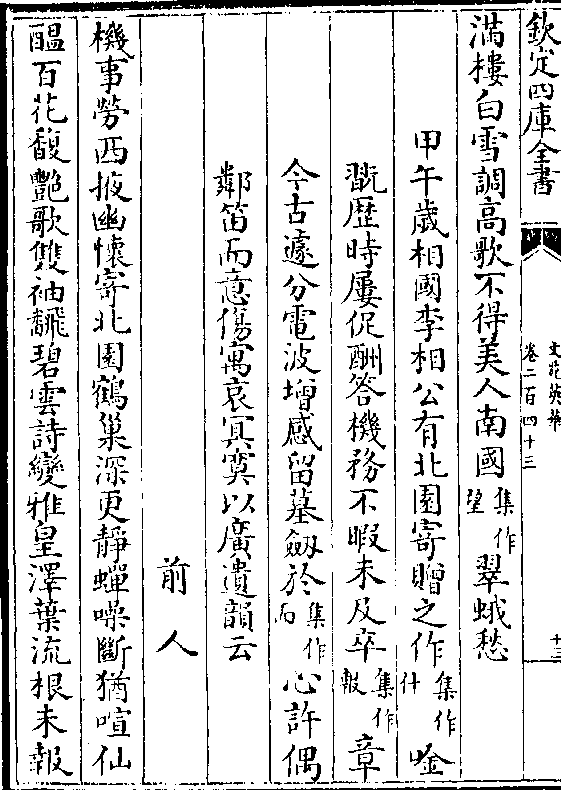 欽定四庫全書
文苑英華
卷二百四十三
十三
滿樓白雪調高歌不得美人南國集作望翠蛾愁
甲午歲相國李相公有北園寄贈之作集作什唫
翫歷時屢促酬答機務不暇未及卒集作報章
今古遽分電波增感留墓劒於集作而心許偶
鄰笛而意傷寓哀冥寞以廣遺韻云
前人
機事勞西掖幽懷寄北園鶴巢深更靜蟬噪斷猶喧仙
醖百花馥艷歌雙袖飜碧雲詩變雅皇澤葉流根未報